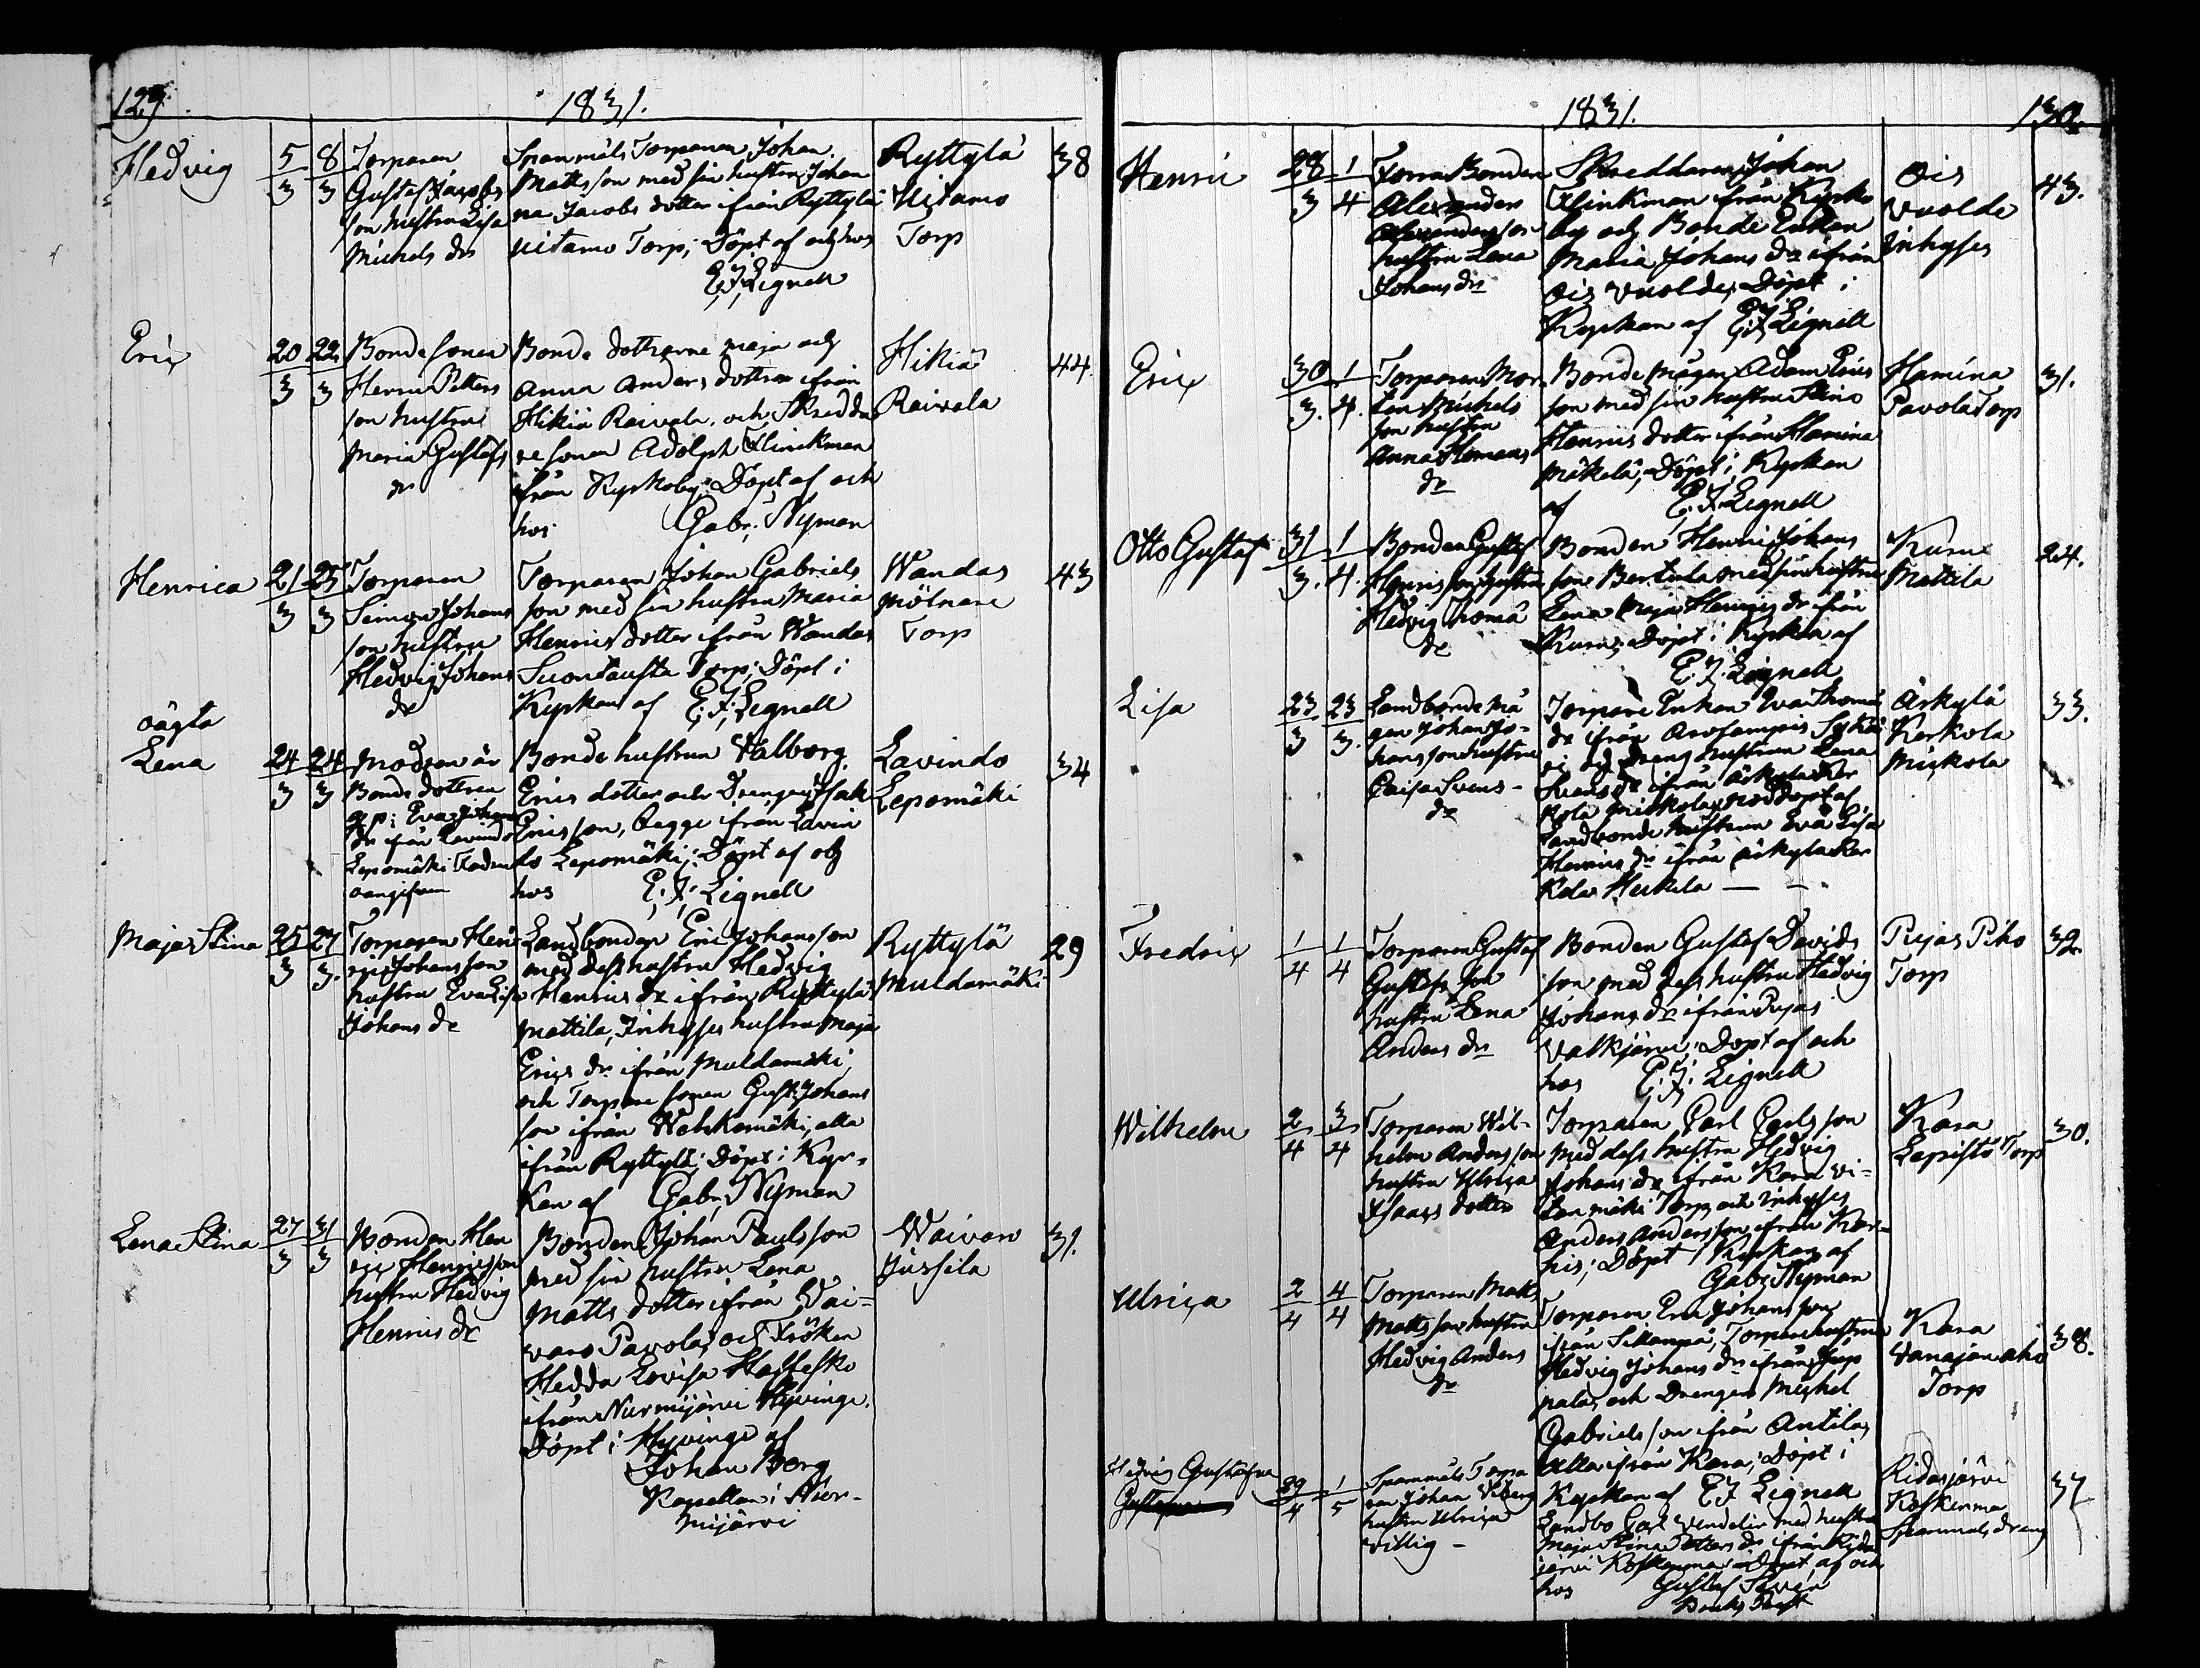 129.
1831.
Hedvig 5/3 8/3
Torparen
Gustaf Jacobs
son hustru Lisa
Michels dr
Spanmåls Torparen Johan
Mattsson med sin hustru Johan
na Jacobs dotter ifrån Ryttylä
Uitamo Torp; Döpt af och hos
E. J. Lignell
Ryttylä
Uitamo
Torp
38
Eric 20/3 22/3
Bonde sonen
Henric Petters
son hustru
Maria Gustafs
dr
Bonde döttrarne Maja och
Anna Anders döttrar ifrån
Hikiä Raivala, och Skredda
re sonen Adolph Flinckman
ifrån Kyrkoby; Döpt af och
hos Gabr. Nyman
Hikiä
Raivala
44
Henrica 21/3 25/3
Torparen
Simon Johans
son hustru
Hedvig Johans
dr
Torparen Johan Gabriels
son med sin hustru Maria
Henrics dotter ifrån Wandas
Suontausta Torp; Döpt i
Kyrkan af E. J. Lignell
Wandas
Mölnare
Torp
43
oägta
Lena 24/3 24/3
Modren är
Bonde dottren
Eva Johans
dr ifrån Lavindo
Lepomäki Fadren
oangifven
Bonde hustrun Valborg
Erics dotter och Drengen Isak
Ericsson, begge ifrån Lavin
do Lepomäki; Döpt af och
hos E. J. Lignell
Lavindo
Lepomäki
34
Maja Stina 25/3 27/3
Torparen Hen
ric Johansson
hustru Eva Lisa
Johans dr
Landbonden Eric Johansson
med dess hustru Hedvig
Henrics dr ifrån Ryttylä
Mattila, Inhyses hustru Maja
Erics dr ifrån Muldamäki
och Torpare sonen Gust. Johans
son ifrån Wahkamäki, alla
ifrån Ryttylä; Döpt i Kyr-
kan af Gabr. Nyman
Ryttylä
Muldamäki
29
Lena Stina 27/3 31/3
Bonden Hen
ric Henricsson
hustru Hedvig
Henrics dr
Bonden Johan Paulsson
med sin hustru Lena
Matts dotter ifrån Wai-
varo Pavola, och Fröken
Hedda Lovisa
ifrån Nurmijärvi Hyvinge.
Döpt i Hyvinge af
Johan Berg
Kapellan i Nur-
mijärvi
Waivaro
Jussila
31.
1831.
130.
Henric 28/3 1/4
Forra Bonden
Alexander
Alexandersson
hustru Lena
Johans dr
Skreddaren Johan
Flinkman från Kyrko
by och Bonde Enkan
Maria Johans dr ifrån
Ois Vuolde; Döpt i
Kyrkan af E. J. Lignell
Ois
Vuolde
Inhyses
43.
Eric 30/3. 1/4.
Torparen Mor
ten Michels
son hustru
Anna Hemans
dr
Bonde mågen Adam Erics
son med sin hustru Stina
Henrics dotter ifrån Hamina
Mäkelä; Döpt i Kyrkan
af E. J. Lignell
Hamina
Pavola Torp
31.
Otto Gustaf 31/3. 1/4.
Bonden Gustaf
Henricsson hustru
Hedvig Thomæ
dr
Bonden Henric Johans
son Bertula med sin hustru
Lena Maja Henrics dr ifrån
Kuru; Döpt i Kyrkan af
E. J. Lignell
Kuru
Mattila
24.
Lisa 23/3 23/3.
Landbonde må
gen Johan Jo-
hansson hustru
Caisa Svens-
dr
Torpare Enkan Eva Thomæ
dr ifrån
och Dreng hustrun Lena
Svens dr ifrån Äikylä Ker
kola Mickola, nöddöpt af
Landbonde hustrun Eva Lisa
Henrics dr ifrån Äikylä Ker
kola Heikila —
Äikylä
Kerkola
Mickola
33.
Fredric 1/4 1/4
Torparen Gustaf
Gustafsson
hustru Lena
Anders dr
Bonden Gustaf Davids
son med dess hustru Hedvig
Johans dr ifrån Pujas
Valkjärvi; Döpt af och
hos E. J. Lignell
Pujas Piho
Torp
32.
Wilhelm 2/4 3/4
Torparen Wil-
helm Andersson
hustru Ulrica
Isaacs dotter
Torparen Carl Carlsson
med dess hustru Hedvig
Johans dr ifrån Kara Vi-
tanmäki Torp, och Inhyses
Anders Andersson ifrån Kar-
his; Döpt i Kyrkan af
Gabr. Nyman
Kara
Lepistö Torp
30.
Ulrica 2/4 4/4
Torparen Matts
Mattsson hustru
Hedvig Anders
dr
Torparen Eric Johansson
ifrån Sillanpä, Torpare hustrun
Hedvig Johans dr ifrån Jup
pala, och Drengen Michel
Gabrielsson ifrån Antila,
Alla ifrån Kara; Döpt i
Kyrkan af E. J. Lignell
Kara
Vanajanaho
Torp
38.
Hedvig Gustafva 29/4 1/5
Spanmåls Torpa
ren Johan
hustru Ulrica
Villig -
Landbo Carl Vendelin med hustru
Maja Stina Petters dr ifrån Rida
järvi Koskenma; Döpt af och
hos Gustaf Sevén
Bruks Prest
Ridasjärvi
Koskenma
Spanmåls dreng
37